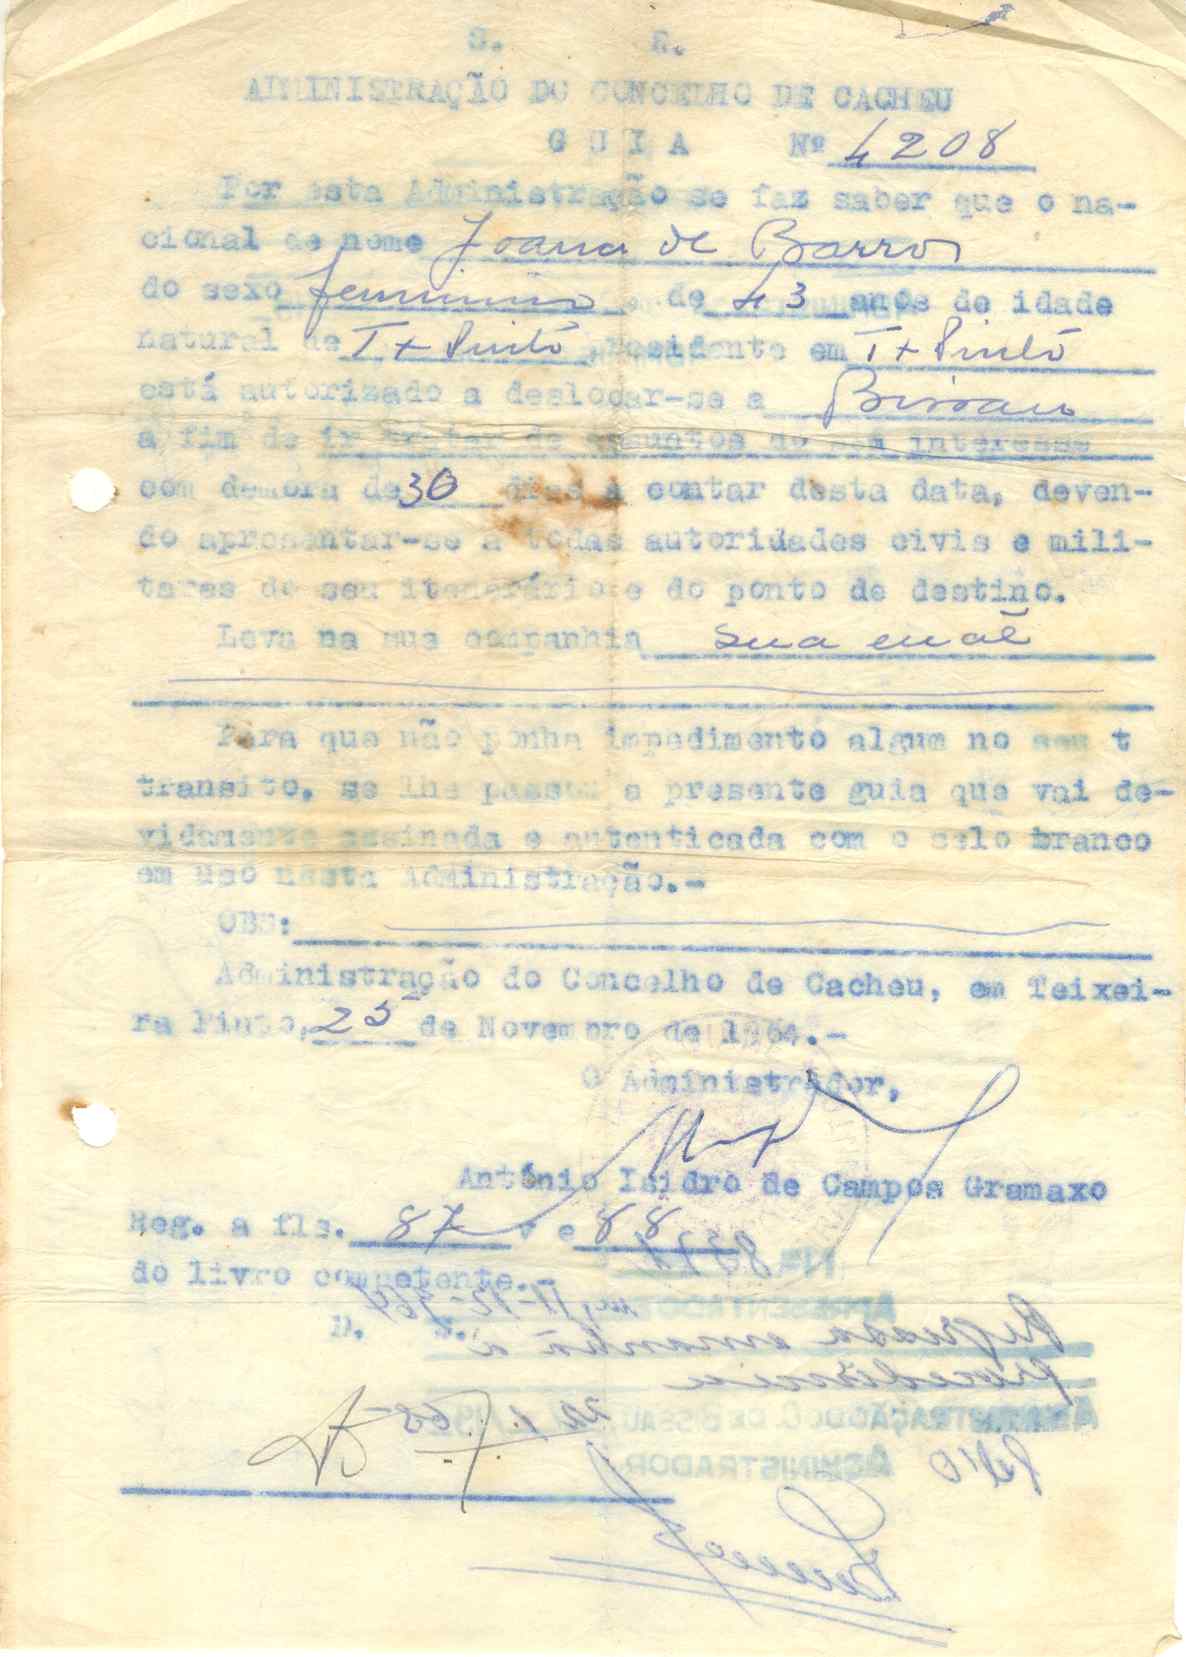 S. R.
ADMINISTRAÇÃO DO CONCELHO DE CACHEU
G U I A Nº 4208
Por esta Administração se faz saber que o na-
cional de nome Joana de Barros
do sexo feminino e de 43 anos de idade
natural de Tx Pintô, residente em Tx Pintô
está autorizado a deslocar-se a Bissau
a fim de ir tratar de assuntos do seu interesse
com demora de 30 dias a contar desta data, deven-
do apresentar-se a todas autoridades civis e mili-
tares do seu itenerário e do ponto de destino.
Leva na sua companhia sua mãe
Para que não ponha impedimento algum no seu t
transito, se lhe passou a presente guia que vai de-
vidamente assinada e autenticada com o selo branco
em uso nesta Administração.-
OBS:
Administração do Concelho de Cacheu, em Teixei-
ra Pinto, 25 de Novembro de 1964.-
O Administrador,
António Isidro de Campos Gramaxo
Reg. a fls. 87 v e 88
do livro competente.-
Nº 8571
APRESENTADO em, 11-12-964
D. S.
Regressa amanhã à
procedência
ADMINISTRAÇÃO DO C. DE BISSAU, 22/1/1965
O ADMINISTRADOR